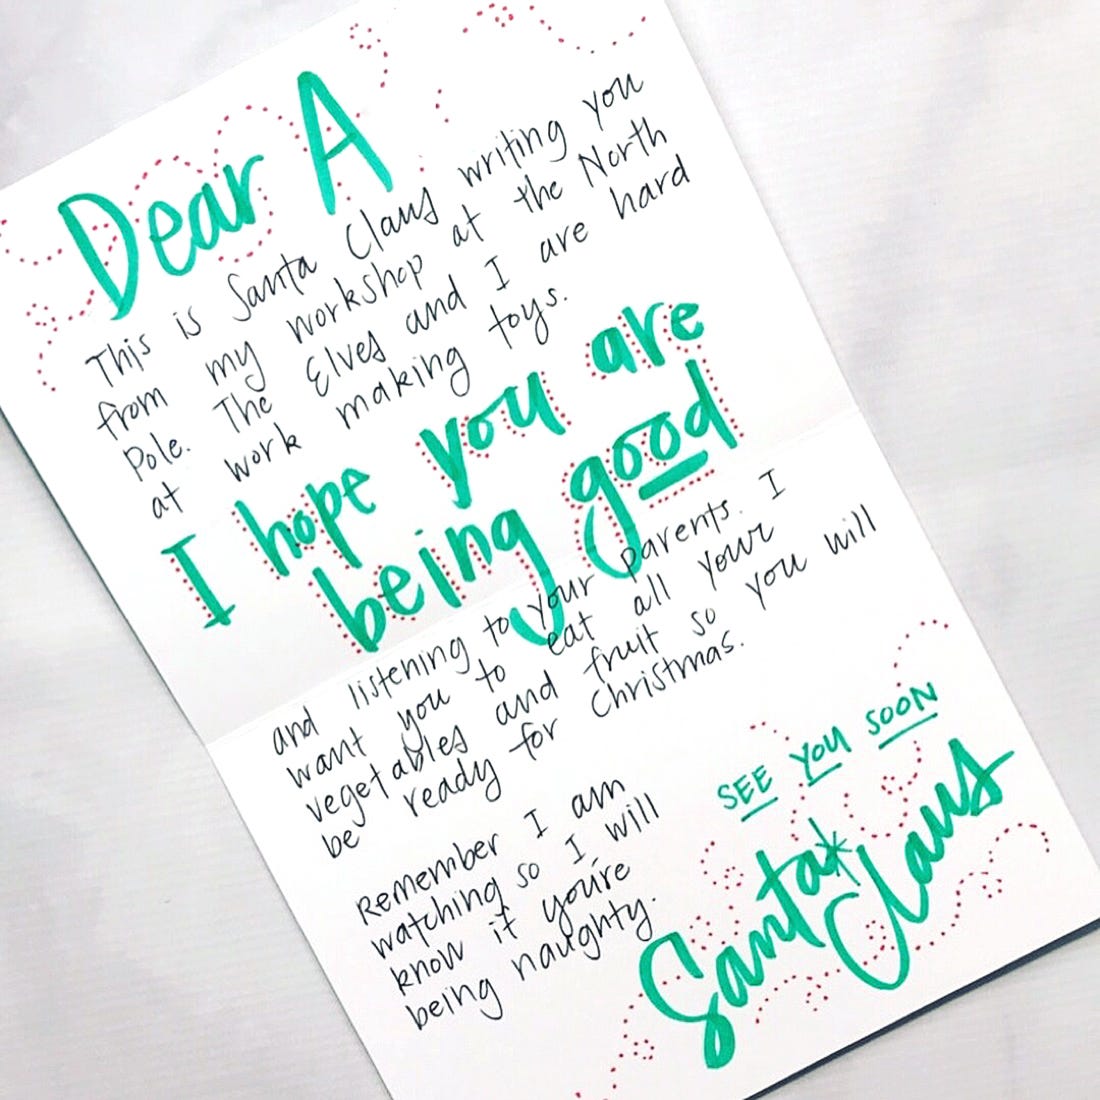 Dear A
This is Santa Claus writing you
from my workshop at the North
Pole. The Elves and I are hard
at work making toys.
I hope you are
being good
and listening to your parents. I
want you to eat all your
vegetables and fruit so you will
be ready for Christmas.
Remember I am
watching so I will
know if you're
being naughty.
SEE YOU SOON
Santa
Claus